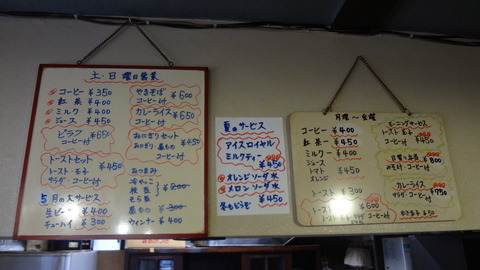 土・日曜日営業
コーヒー ¥350
紅茶 ¥400
ミルク ¥400
ジュース ¥450
ピラフ ¥650
コーヒー付
トーストセット
トースト・玉子
サラダ・コーヒー付 ¥450
5月の大サービス
生ビール ¥400
チューハイ ¥300
やきそば ¥600
コーヒー付
カレーライス ¥650
コーヒー付
おにぎりセット
コーヒー付 ¥450
おつまみ
冷やっこ
枝豆 ¥200
そら豆
ウィンナー ¥400
夏のサービス
アイスロイヤル
ミルクティー
¥450
オレンジソーダ水
メロンソーダ水
¥450
冬もどうぞ
月曜〜金曜
コーヒー ¥400
紅茶 ¥450
ミルク ¥400
ジュース
トマト ¥450
オレンジ
トースト ¥300
¥600
コーヒー付
モーニングサービス
トースト 玉子
コーヒー付 ¥450
¥800
みそ汁・コーヒー付
カレーライス
サラダ・コーヒー付 ¥750
ゆで玉子 ¥50